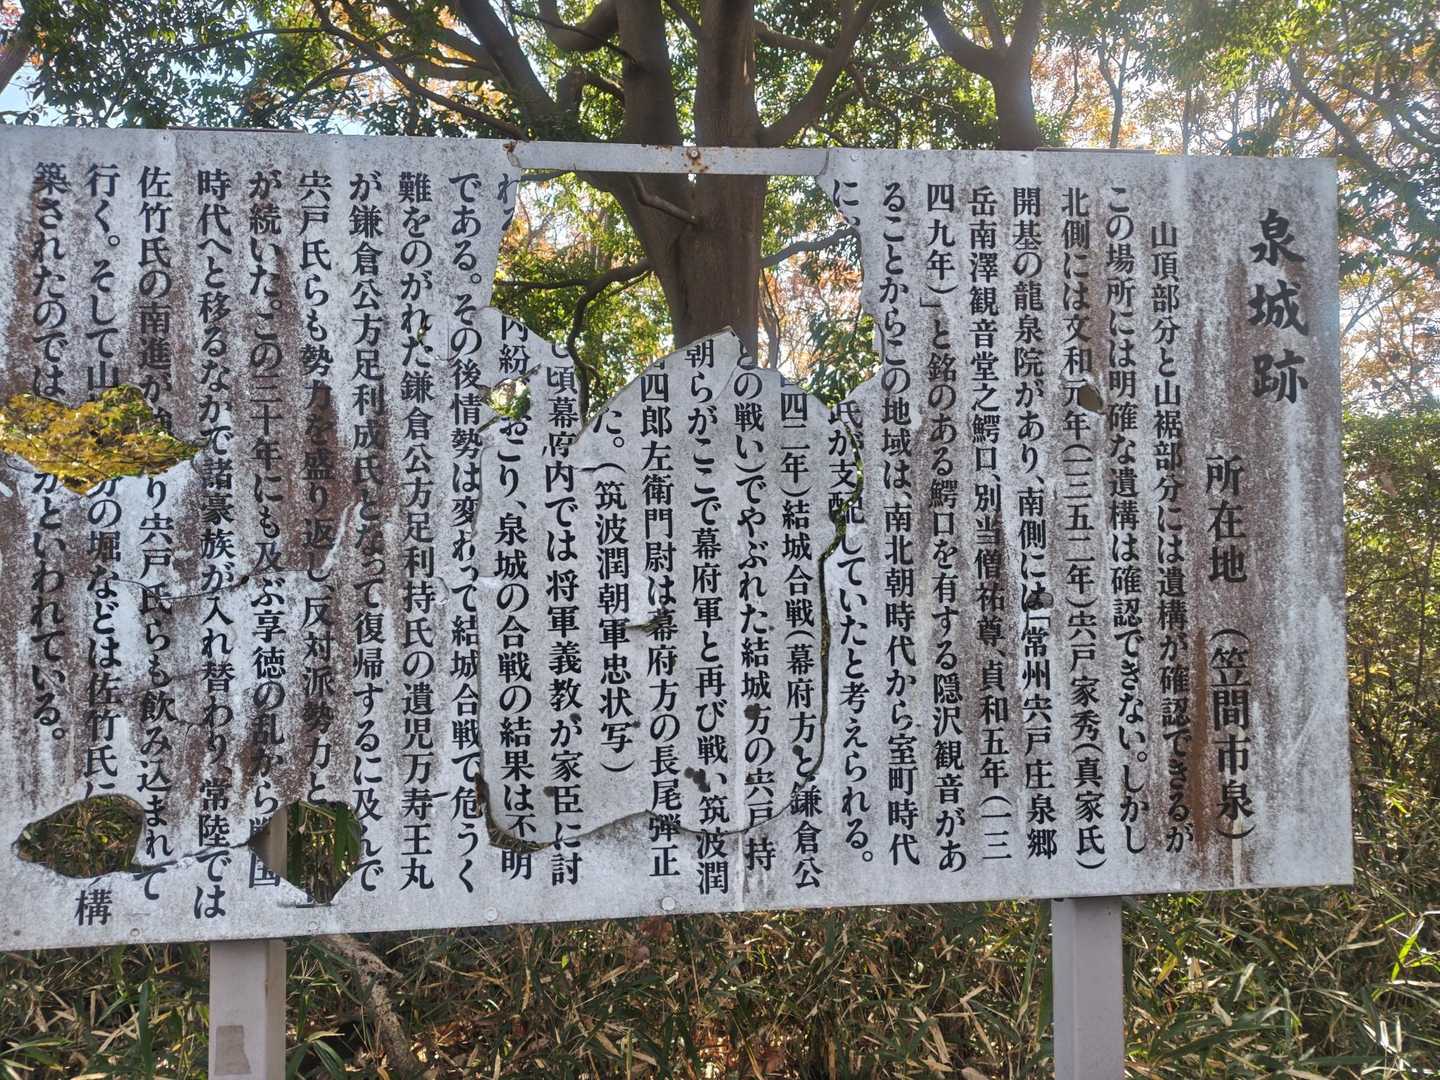 泉城跡
所在地 (笠間市泉)
山頂部分と山裾部分には遺構が確認できるが
この場所には明確な遺構は確認できない。しかし
北側には文和元年(一三五二年)宍戸家秀(真家氏)
開基の龍泉院があり、南側には「常州宍戸庄泉郷
岳南澤観音堂之鰐口、別当僧祐尊、貞和五年(一三
四九年)」と銘のある鰐口を有する隠沢観音があ
ることからこの地域は、南北朝時代から室町時代
に、 氏が支配していたと考えられる。
四二年)結城合戦(幕府方と鎌倉公
との戦い)でやぶれた結城方の宍戸持
朝らがここで幕府軍と再び戦い、筑波潤
四郎左衛門尉は幕府方の長尾弾正
た。(筑波潤朝軍忠状写)
し頃幕府内では将軍義教が家臣に討
内紛 おこり、泉城の合戦の結果は不明
である。その後情勢は変わって結城合戦で危うく
難をのがれた鎌倉公方足利持氏の遺児万寿王丸
が鎌倉公方足利成氏となって復帰するに及んで
宍戸氏らも勢力を盛り返し、反対派勢力と
が続いた。この三十年にも及ぶ享徳の乱から戦国
時代へと移るなかで諸豪族が入れ替わり、常陸では
佐竹氏の南進が り宍戸氏らも飲み込まれて
行く。そして山 分の堀などは佐竹氏に 構
築されたのでは かといわれている。